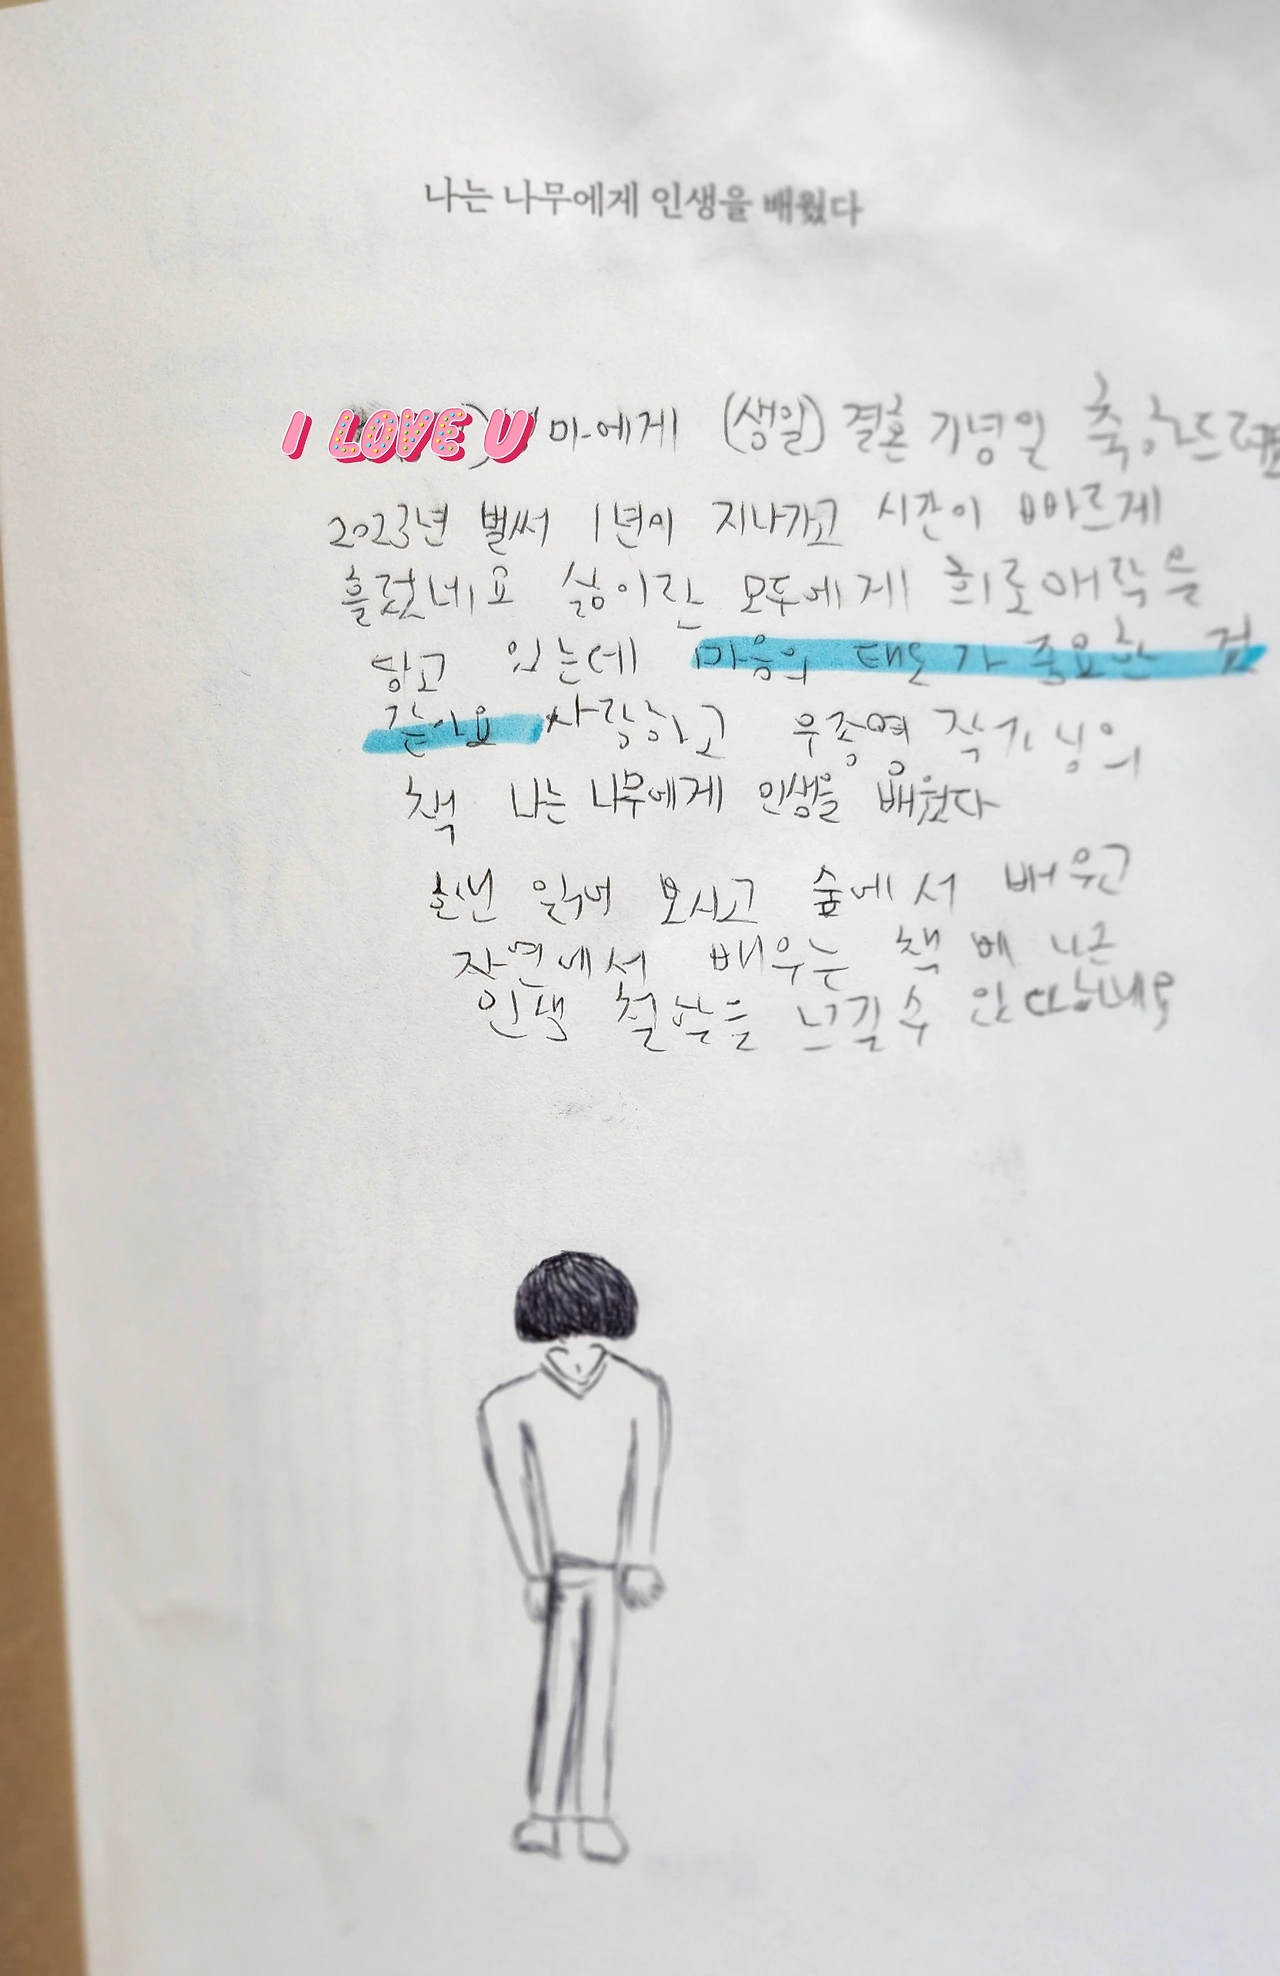 나는 나무에게 인생을 배웠다
I LOVE U 마에게 (생일) 결혼 기념일 축하드려요
2023년 벌써 1년이 지나가고 시간이 빠르게
흘렀네요 삶이란 모두에게 희로애락을
담고 있는데 마음의 태도가 중요한 것
같아요 사랑하고 우종영 작가님의
책 나는 나무에게 인생을 배웠다
한번 읽어 보시고 숲에서 배우고
자연에서 배우는 책
인생 철학을 느낄 수